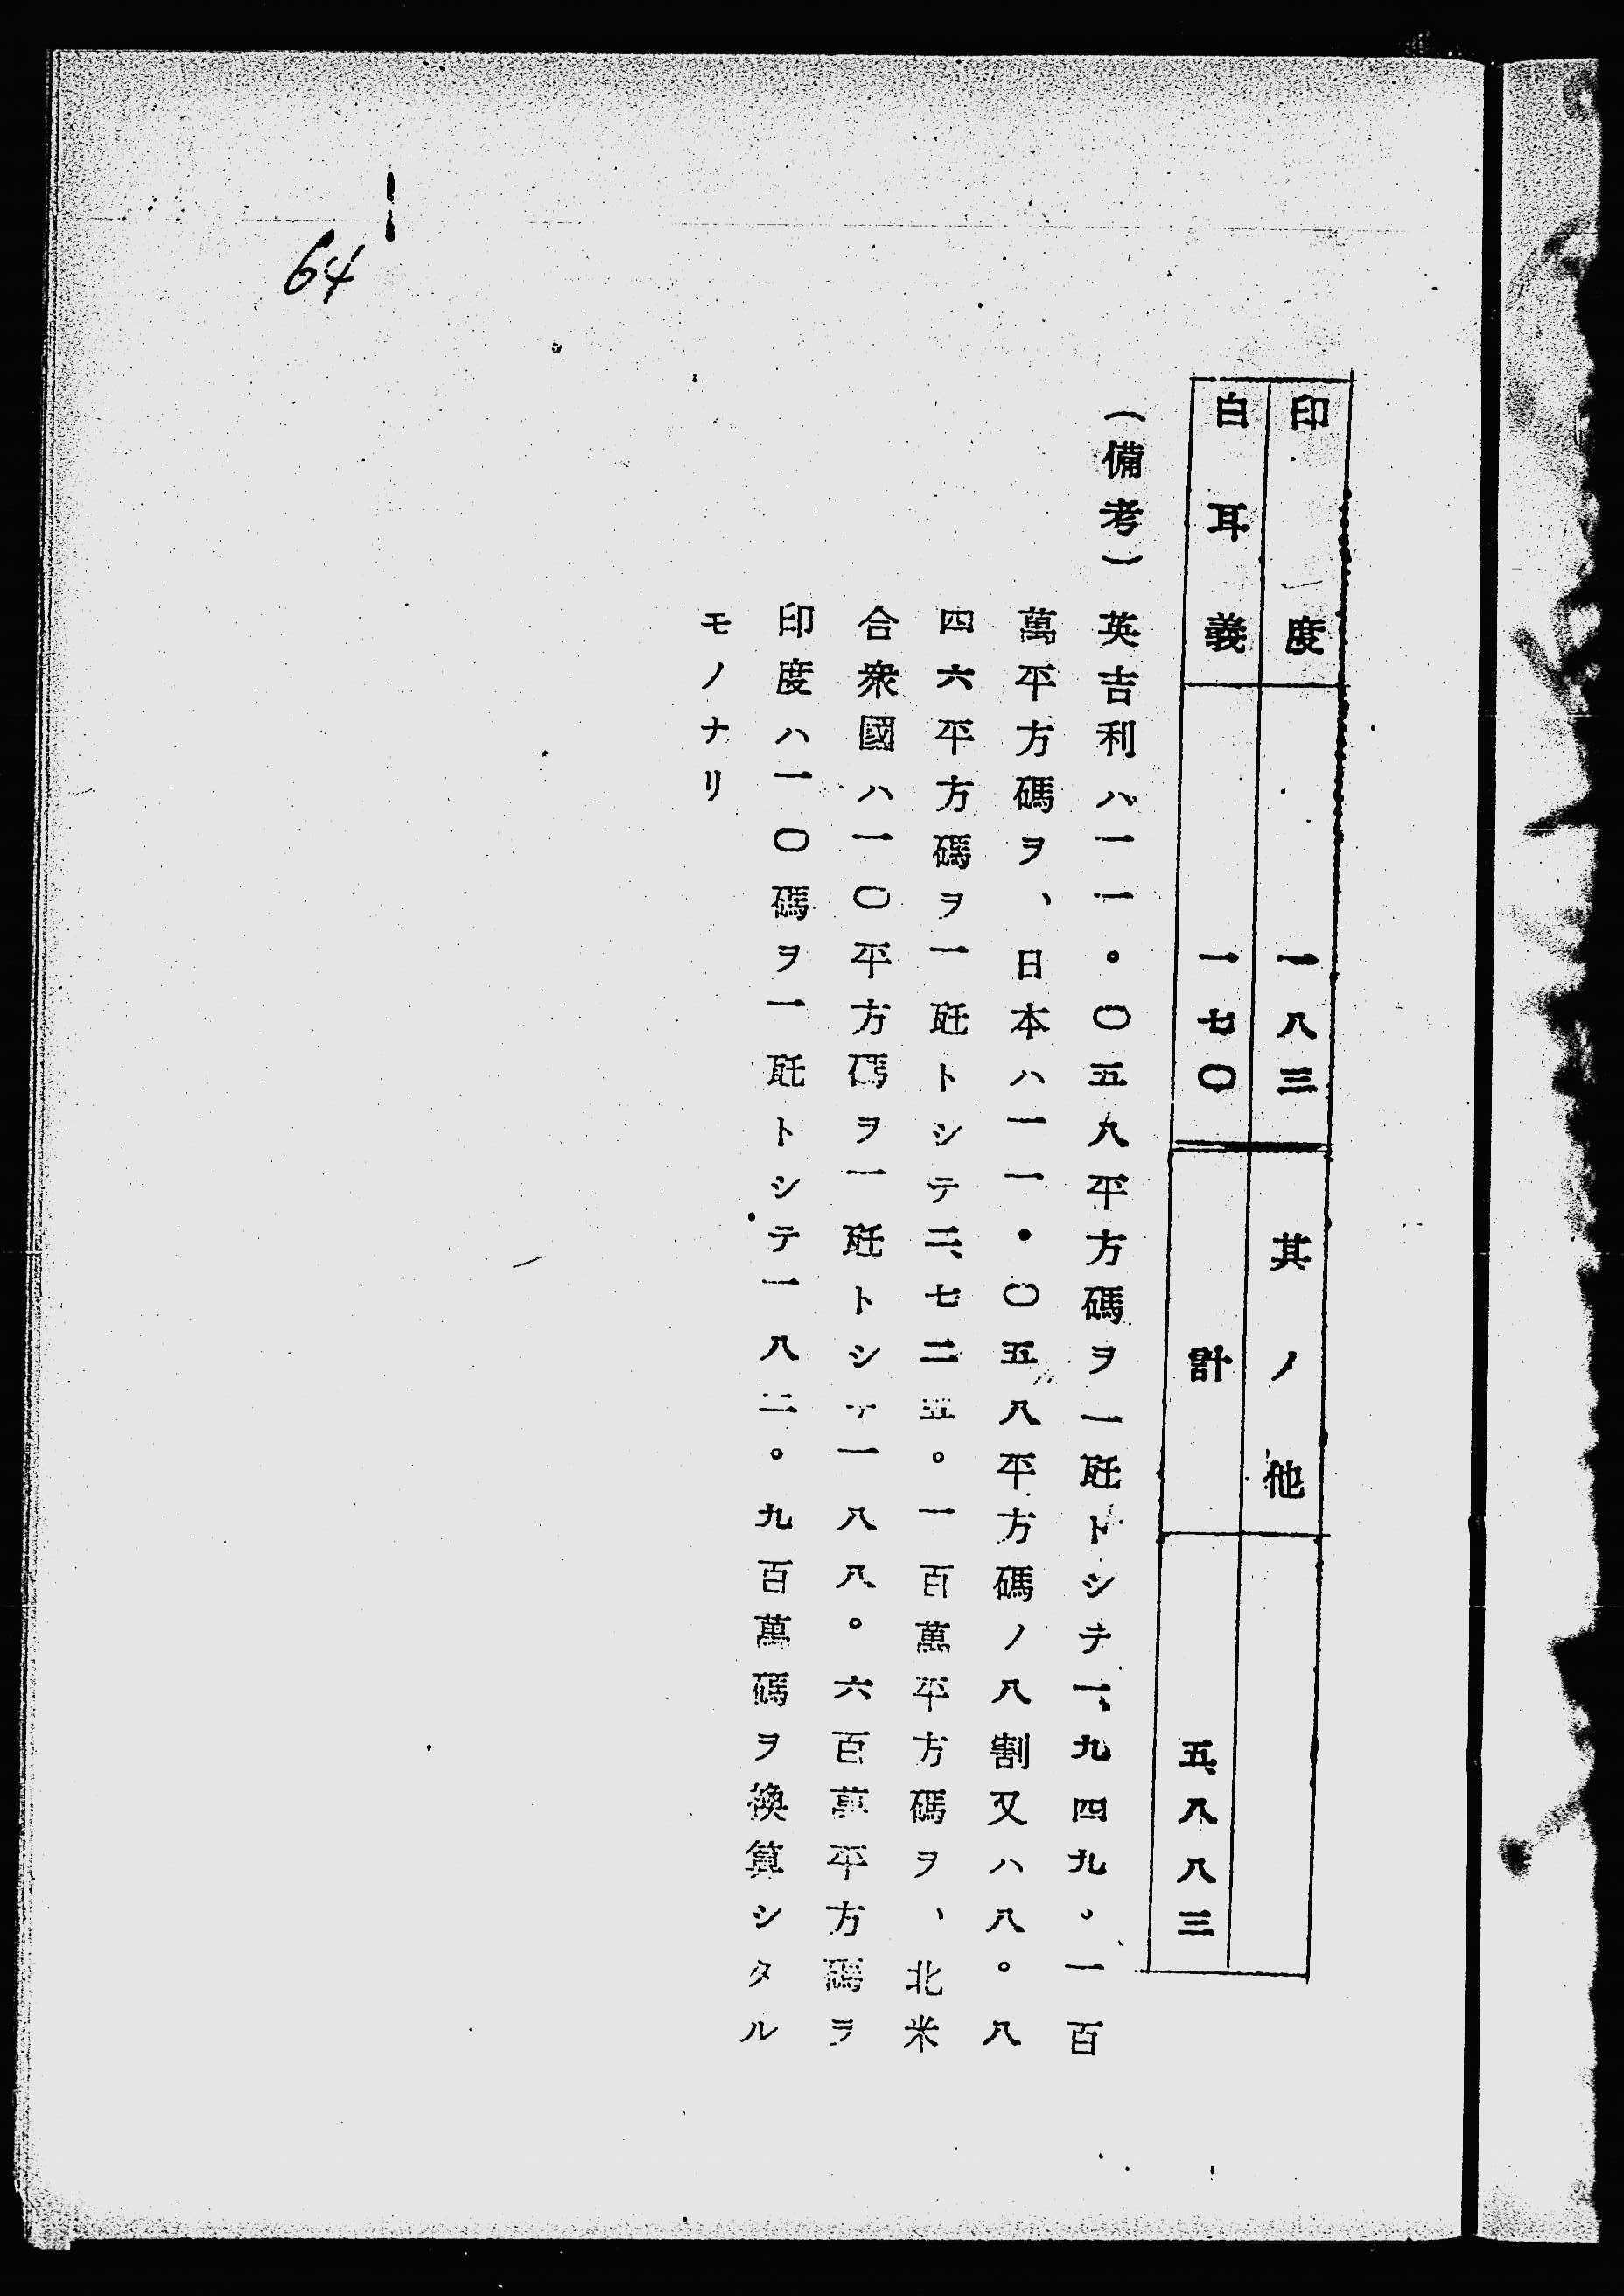 印度 一八三 其ノ他
白耳義 一七〇 計 五、八八三
(備考) 英吉利ハ一一。〇五八平方碼ヲ一瓩トシテ一、九四九。一百
萬平方碼ヲ、日本ハ一一・〇五八平方碼ノ八割又ハ八。八
四六平方碼ヲ一瓩トシテ二、七二五。一百萬平方碼ヲ、北米
合衆國ハ一〇平方碼ヲ一瓩トシテ一八八。六百萬平方碼ヲ
印度ハ一〇碼ヲ一瓩トシテ一八二。九百萬碼ヲ換算シタル
モノナリ
64